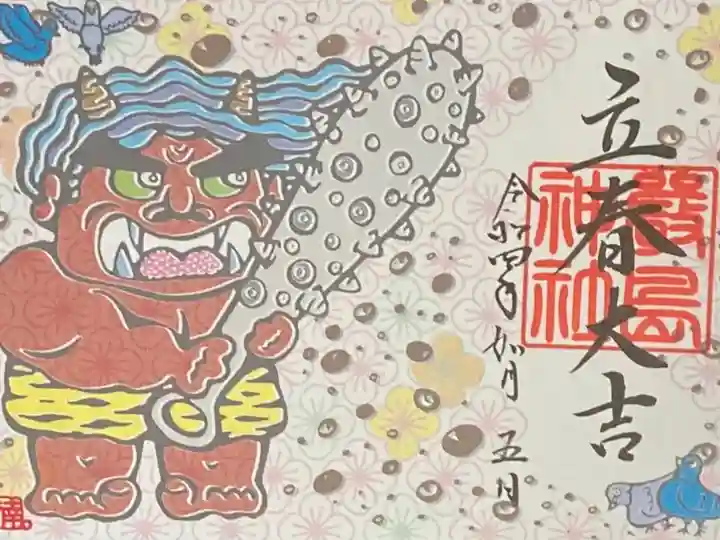 立春大吉
鷺島
神社
令和四年 如月 五日